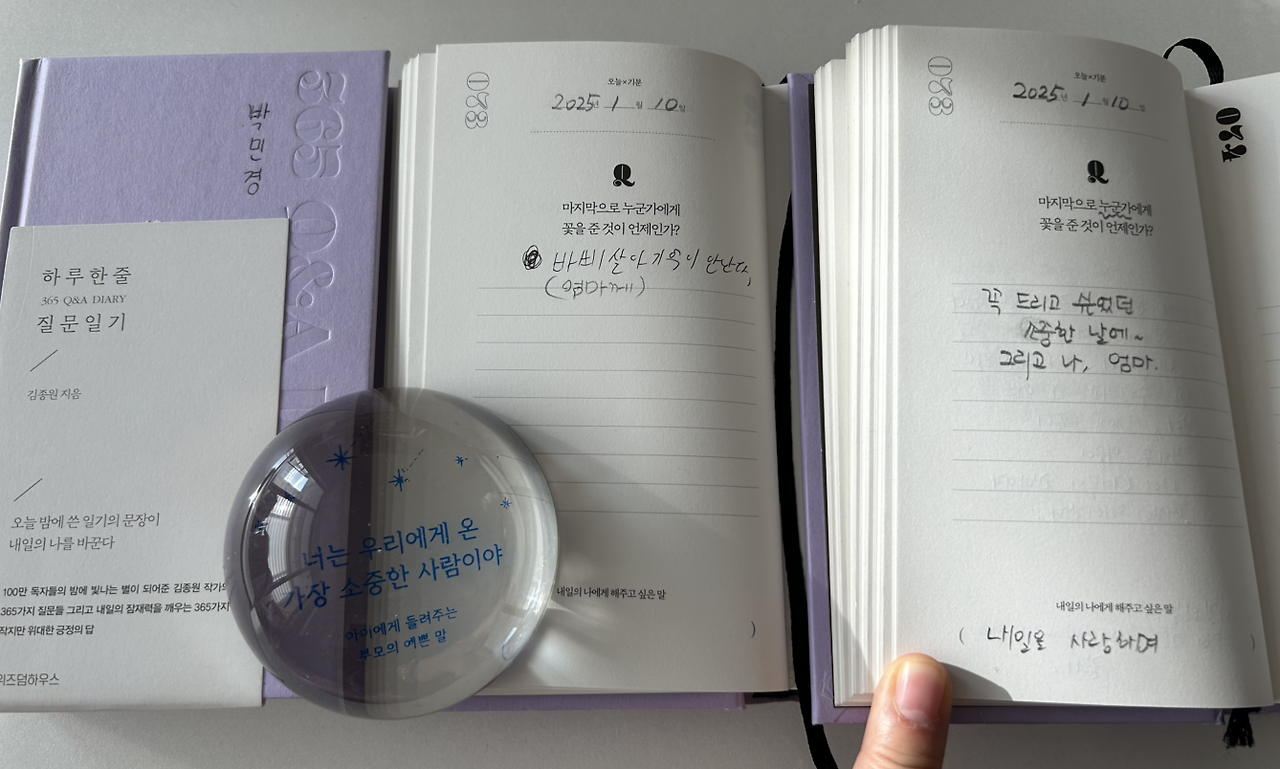 365 Q&A
박민경
하루 한 줄
365 Q&A DIARY
질문 일기
김종원 지음
오늘 밤에 쓴 일기의 문장이
내일의 나를 바꾼다
100만 독자들의 밤에 빛나는 별이 되어준 김종원 작가의
365가지 질문들 그리고 내일의 잠재력을 깨우는 365가지
작지만 위대한 긍정의 답
위즈덤하우스
너는 우리에게 온
가장 소중한 사람이야
아이에게 들려주는
부모의 예쁜 말
073
오늘×기분
2025년 1월 10일
Q
마지막으로 누군가에게
꽃을 준 것이 언제인가?
바삐 살아 기억이 안난다,
(엄마께)
내일의 나에게 해주고 싶은 말
)
073
오늘×기분
2025년 1월 10일
Q
마지막으로 누군가에게
꽃을 준 것이 언제인가?
꼭 드리고 싶었던
소중한 날에~
그리고 나, 엄마.
내일의 나에게 해주고 싶은 말
( 내일을 사랑하며 )
074